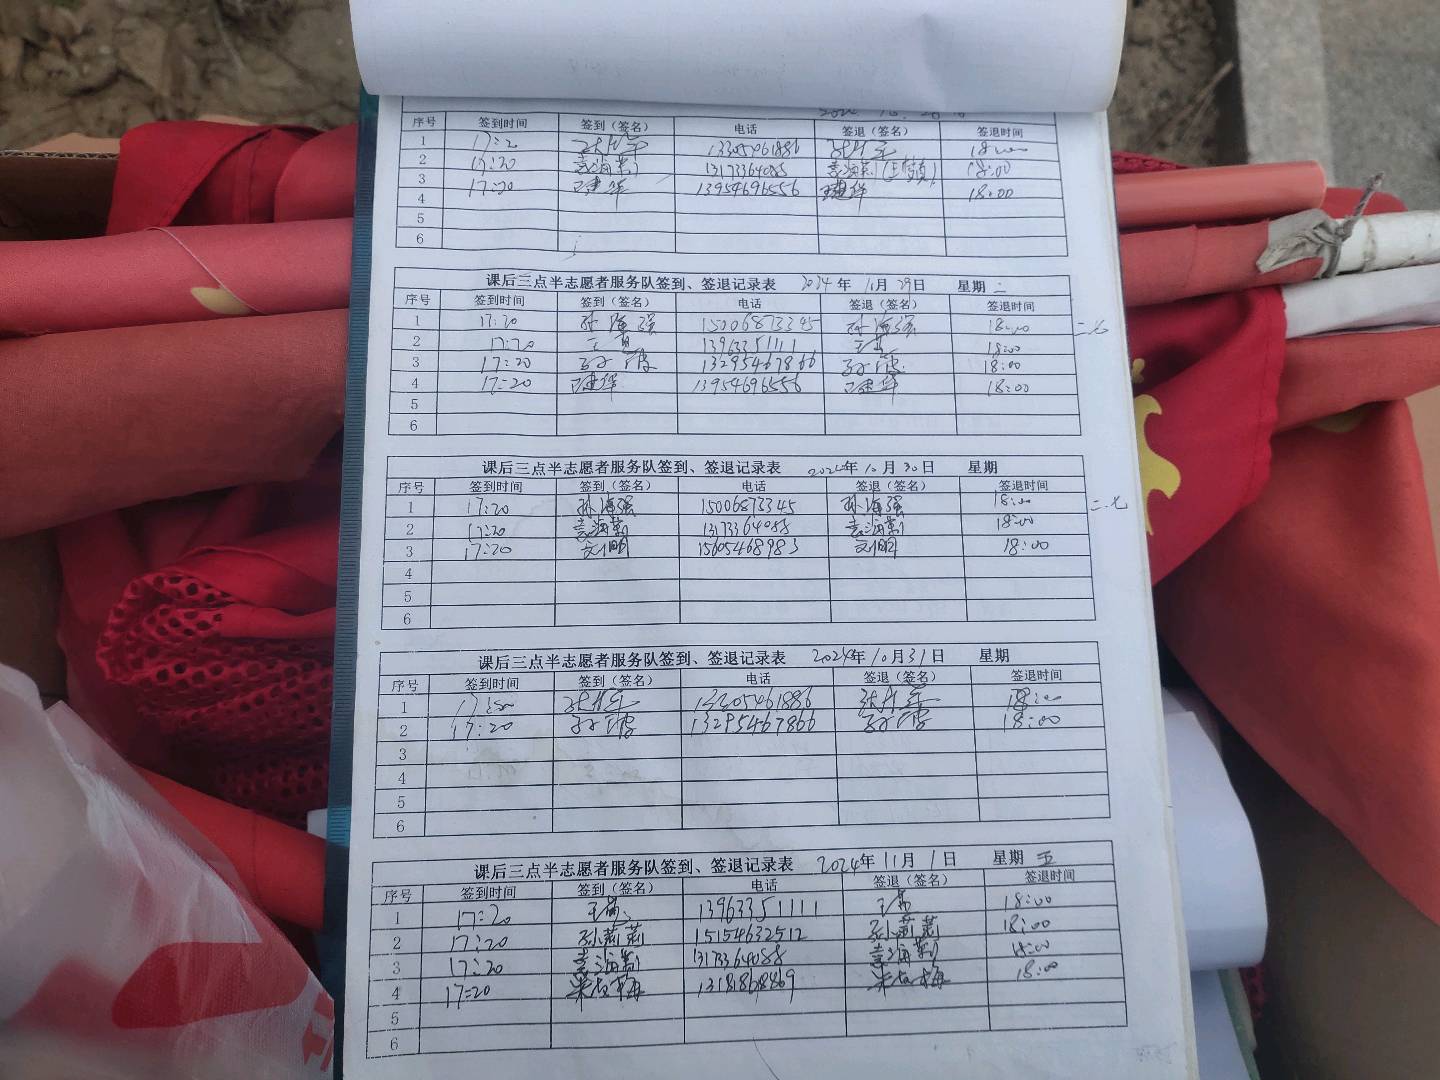 序号 签到时间 签到（签名） 电话 签退（签名） 签退时间
1 17:20 13305461886 18:00
2 17:20 袁海莉 13173364088 袁海莉 18:00
3 17:20 王建华 13954696556 王建华 18:00
4
5
6
课后三点半志愿者服务队签到、签退记录表 2024年10月29日 星期二
序号 签到时间 签到（签名） 电话 签退（签名） 签退时间
1 17:20 孙海强 15006873345 孙海强 18:00 二.七
2 17:20 13963351111 18:00
3 17:20 13295467866 18:00
4 17:20 王建华 13954696556 王建华 18:00
5
6
课后三点半志愿者服务队签到、签退记录表 2024年10月30日 星期
序号 签到时间 签到（签名） 电话 签退（签名） 签退时间
1 17:20 孙海强 15006873345 孙海强 18:00 二.七
2 17:20 袁海莉 13173364088 袁海莉 18:00
3 17:20 15605468983 18:00
4
5
6
课后三点半志愿者服务队签到、签退记录表 2024年10月31日 星期
序号 签到时间 签到（签名） 电话 签退（签名） 签退时间
1 13305461886 18:00
2 17:20 13295467866 18:00
3
4
5
6
课后三点半志愿者服务队签到、签退记录表 2024年11月1日 星期五
序号 签到时间 签到（签名） 电话 签退（签名） 签退时间
1 17:20 13963351111 18:00
2 17:20 孙莉莉 15154632512 孙莉莉 18:00
3 17:20 袁海莉 13173364088 袁海莉 18:00
4 17:20 13181868869 18:00
5
6